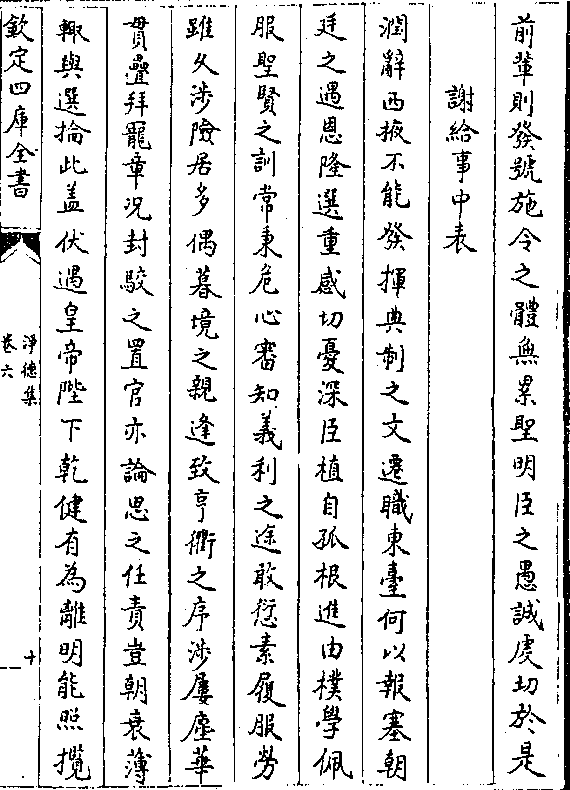 前輩則發號施令之體無累聖明臣之愚誠虔切於是
謝給事中表
潤辭西掖不能發揮典制之文遷職東臺何以報塞朝
廷之遇恩隆選重感切憂深臣植自孤根進由樸學佩
服聖賢之訓常秉危心審知義利之途敢愆素履服勞
雖久涉險居多偶暮境之親逢致亨衢之序涉屢塵華
貫疊拜寵章況封駮之置官亦論思之任責豈朝衰薄
輙與選掄此盖伏遇皇帝陛下乾健有為離明能照攬
欽定四庫全書
淨德集
卷六
十